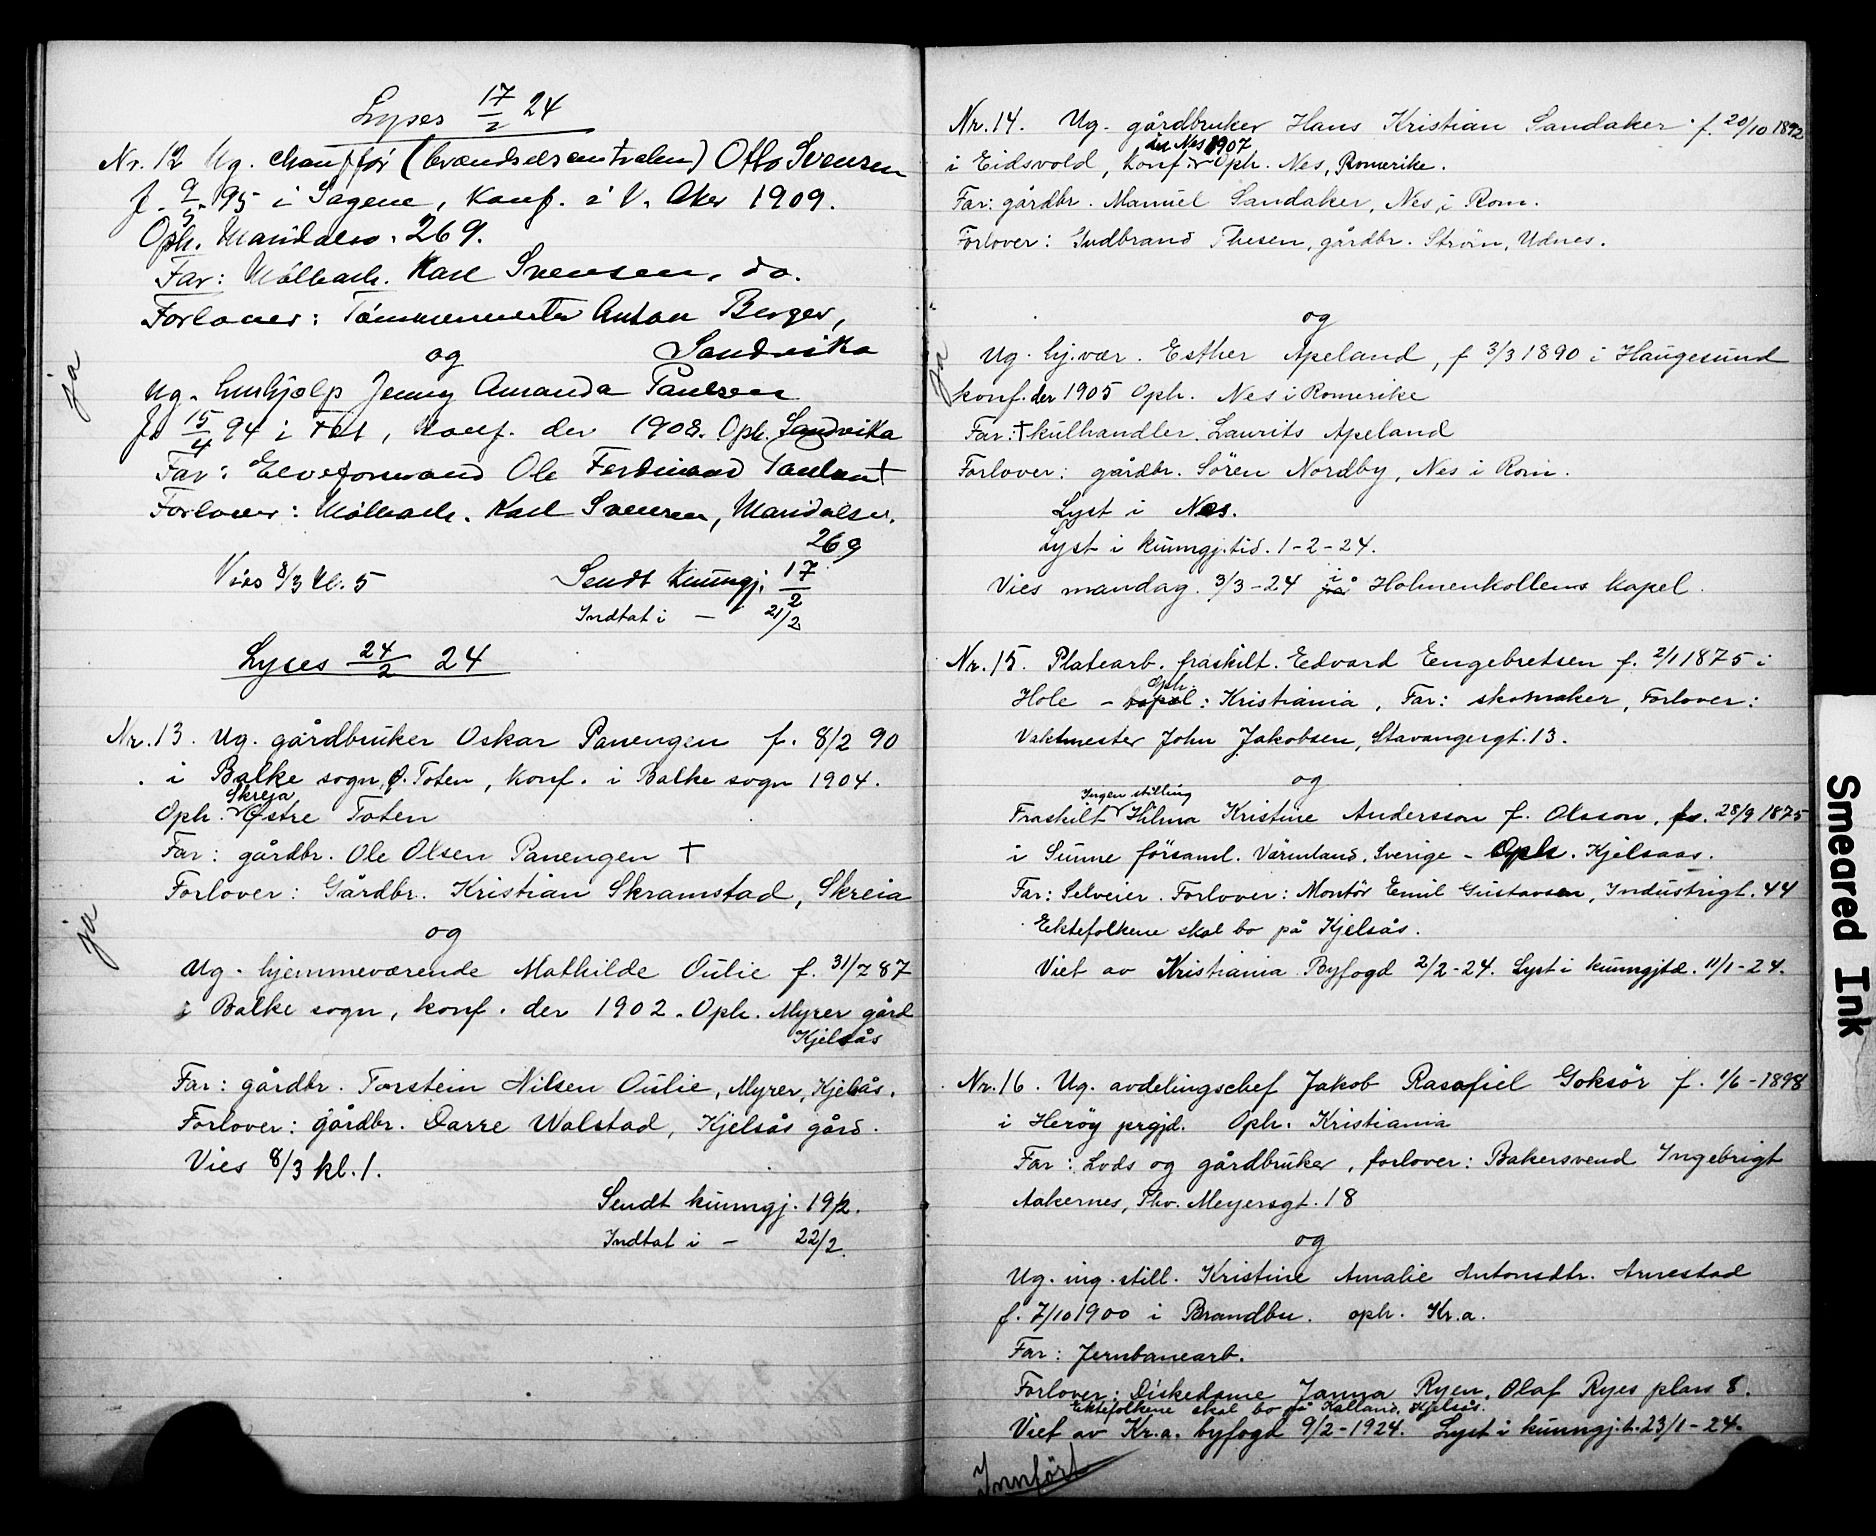 Lyses 17/2 24
Nr. 12 Ug. chauffør (brændselscentralen) Otto Svensen
f. 9/5 95 i Sagene, konf. i V. Aker 1909.
Oph. Maridalsv. 269.
Far: Målearb. Karl Svensen, do.
Forlover: Tømmermester Anton Berger,
og Sandvika
ja
Ug. hushjælp Jenny Amanda Paulsen
f. 15/4 94 i Fet, konf. der 1908. Oph. Sandvika
Far: Elveformand Ole Ferdinand Paulsen †
Forlover: Målearb. Karl Svensen, Maridalsv.
269
Vies 8/3 kl. 5 Sendt kunngj. 17/2
Indtat i — 21/2
Lyses 24/2 24
Nr. 13. Ug. gårdbruker Oskar Panengen f. 8/2 90
i Balke sogn, Ø. Toten, konf. i Balke sogn 1904.
Skreia
Oph. Østre Toten
Far: gårdbr. Ole Olsen Panengen †
Forlover: Gårdbr. Kristian Skramstad, Skreia
ja
og
Ug. hjemmeværende Mathilde Oulie f. 31/7 87
i Balke sogn, konf. der 1902. Oph. Myrer gård
Kjelsås
Far: gårdbr. Torstein Nilsen Oulie, Myrer, Kjelsås.
Forlover: gårdbr. Darre Wolstad, Kjelsås gård.
Vies 8/3 kl. 1.
Sendt kunngj. 19/2.
Indtat i — 22/2.
Nr. 14. Ug. gårdbruker Hans Kristian Sandaker f. 20/10 1892
i Nes 1907
i Eidsvold, konf. Oph. Nes, Romerike.
Far: gårdbr. Manuel Sandaker, Nes i Rom.
Forlover: Gudbrand Thesen, gårdbr. Strøm, Udnes.
og
ja
Ug. hj.vær. Esther Apeland, f 3/3 1890 i Haugesund
konf. der 1905 Oph. Nes i Romerike
Far: † kulhandler Laurits Apeland
Forlover: gårdbr. Sören Nordby, Nes i Rom.
Lyst i Nes.
Lyst i kunngj.tid. 1-2-24.
Vies mandag 3/3-24 i på Holmenkollens kapel.
Nr. 15. Platearb. fraskilt. Edvard Eengebretsen f. 2/1 1875 i
Oph.
Hole – : Kristiania, Far: skomaker, Forlover:
Vaktmester John Jakobsen, Stavangergt. 13.
og
Ingen stilling
Fraskilt Hilma Kristine Andersson f. Olsson, 28/9 1875
i Sunne församl. Värmland, Sverige – Oph. Kjelsaas.
Far: Selveier. Forlover: Montör Emil Gustavsen, Industrigt. 44
Ektefolkene skal bo på Kjelsås.
Viet av Kristiania Byfogd 2/2-24. Lyst i kunngjtd. 11/1-24.
Nr. 16. Ug. avdelingschef Jakob Rasafiel Goksör f. 1/6-1898
i Herøy prgjd. Oph. Kristiania
Far: Lods og gårdbruker, forlover: Bakersvend Ingebrigt
Aakernes, Thv. Meyersgt. 18
og
Ug. ing. still. Kristine Amalie Antonsdtr. Annestad
f. 7/10 1900 i Brandbu. oph. Kr.a.
Far: Jernbanearb.
Forlover: Diskedame Janna Ryen, Olaf Ryes plass 8.
Ektefolkene skal bo på Kalland, Kjelsås.
Viet av Kr.a. byfogd 9/2-1924. Lyst i kunngj.t. 23/1-24.
Innført
Smeared Ink